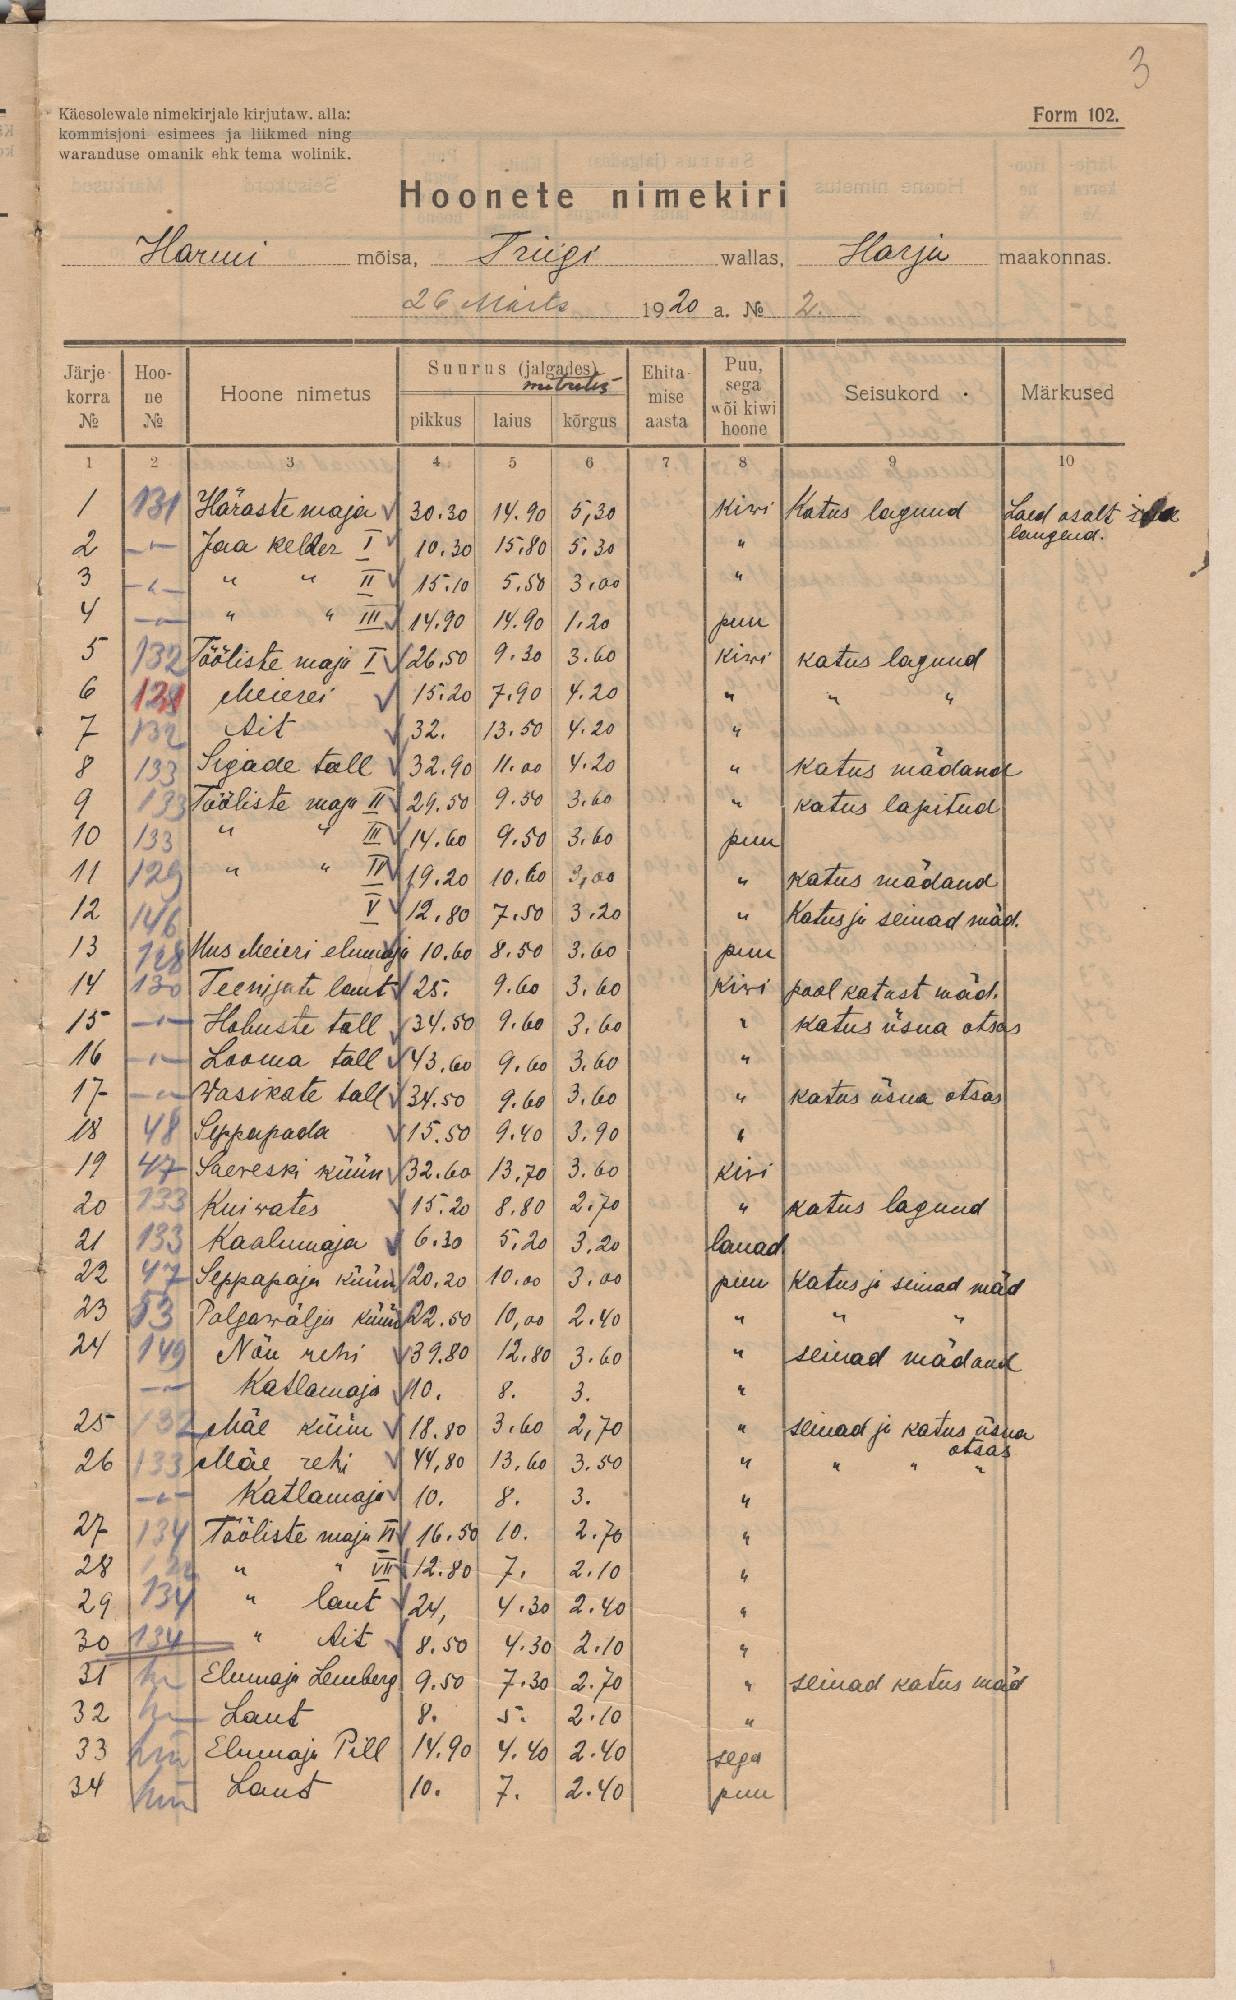 3
Käesolewale nimekirjale kirjutaw. alla:
kommisjoni esimees ja liikmed ning
waranduse omanik ehk tema wolinik.
Form 102.
Hoonete nimekiri
Harmi mõisa, Triigi wallas, Harju maakonnas.
26 Märts 1920 a. № 2.
Järje korra № Hoo- ne № Hoone nimetus Suurus (jalgades) metrites pikkus laius kõrgus Ehita- mise aasta Puu, sega wõi kiwi hoone Seisukord Märkused
1 2 3 4 5 6 7 8 9 10
1 131 Häraste maja 30.30 14.90 5,30 kiwi Katus lagund Laed osalt
langend.
2 -"- Jaa kelder I 10.30 15.80 5.30 "
3 -"- " " II 15.10 5.50 3.00 "
4 -"- " " III 14.90 14.90 1.20 puu
5 132 Tööliste maja I 26.50 9.30 3.60 kiwi katus lagund
6 Meierei 15.20 7.90 4.20 " " "
7 132 Ait 32. 13.50 4.20 "
8 133 Sigade tall 32.90 11.00 4.20 " katus mädand
9 133 Tööliste maja II 29.50 9.50 3.60 " katus lapitud
10 133 " " III 14.60 9.50 3.60 puu
11 129 " " IV 19.20 10.60 3,00 " katus mädand
12 146 V 12.80 7.50 3.20 " Katus ja seinad mäd.
13 128 Uus Meieri elumaja 10.60 8.50 3.60 puu
14 130 Teenijate laut 25. 9.60 3.60 kiwi pool katust mäd.
15 -"- Hobuste tall 34.50 9.60 3.60 " katus üsna otsas
16 -"- Looma tall 43.60 9.60 3.60 "
17 -"- Wasikate tall 34.50 9.60 3.60 " katus üsna otsas
18 48 Seppapada 15.50 9.40 3.90 "
19 47 Saereski küün 32.60 13,70 3.60 kiwi
20 133 Kuiwates 15.20 8.80 2.70 " katus lagund
21 133 Kaalumaja 6.30 5.20 3.20 lauad
22 47 Seppapaja küün 20.20 10.00 3.00 puu Katus ja seinad mäd
23 53 Palgawälja küün 22.50 10,00 2.40 " " "
24 149 Nõu rehi 39.80 12.80 3.60 " seinad mädand
-"- Katlamaja 10. 8. 3. "
25 132 Mäe küün 18.80 3.60 2,70 " seinad ja katus üsna
otsas
26 133 Mäe rehi 44,80 13.60 3.50 " " " "
-"- Katlamaja 10. 8. 3. "
27 134 Tööliste maja VI 16.50 10. 2.70 "
28 " " VII 12.80 7. 2.10 "
29 134 " laut 24, 4.30 2.40 "
30 134 " Ait 8.50 4.30 2.10 "
31 Elumaja Lemberg 9.50 7.30 2.70 " seinad katus mäd
32 Laut 8. 5. 2.10 "
33 Elumaja Pill 14.90 4.40 2.40 sega
34 Laut 10. 7. 2.40 puu